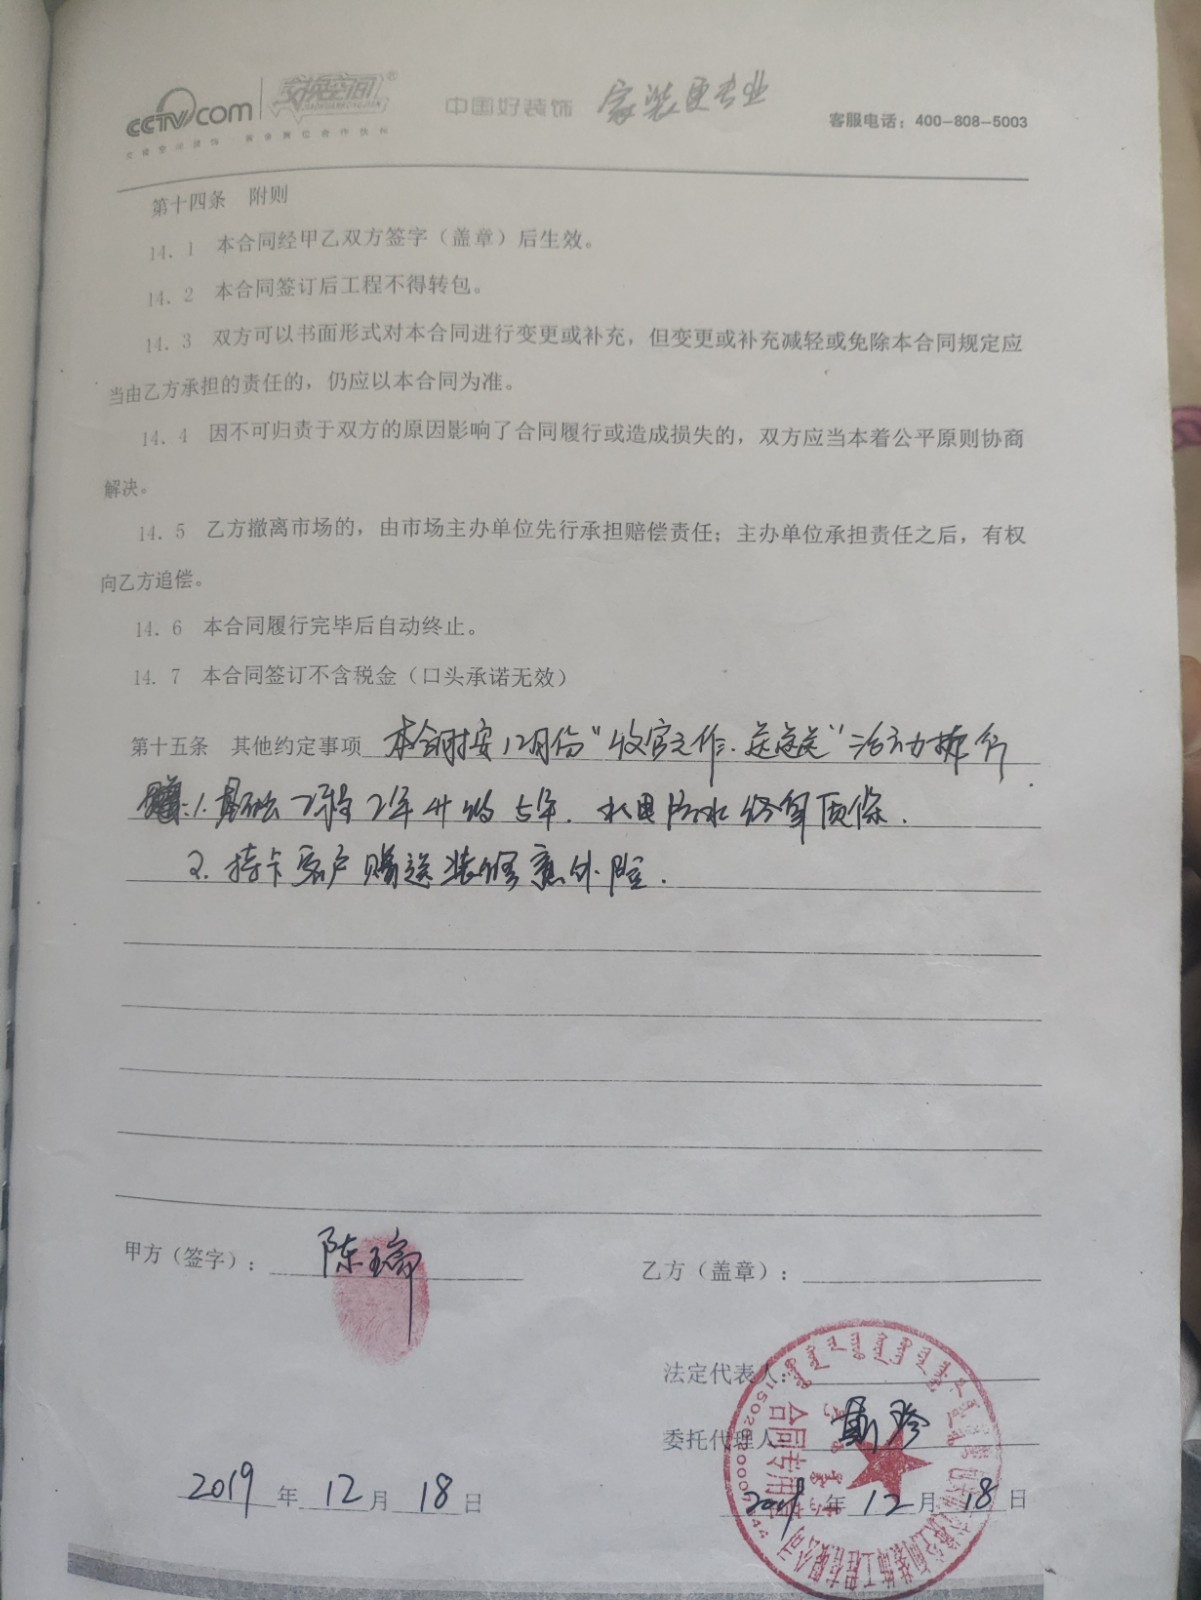 CCTV.com 交换空间®
中国好装饰 家装更专业
客服电话：400-808-5003
第十四条 附则
14.1 本合同经甲乙双方签字（盖章）后生效。
14.2 本合同签订后工程不得转包。
14.3 双方可以书面形式对本合同进行变更或补充，但变更或补充减轻或免除本合同规定应
当由乙方承担的责任的，仍应以本合同为准。
14.4 因不可归责于双方的原因影响了合同履行或造成损失的，双方应当本着公平原则协商
解决。
14.5 乙方撤离市场的，由市场主办单位先行承担赔偿责任；主办单位承担责任之后，有权
向乙方追偿。
14.6 本合同履行完毕后自动终止。
14.7 本合同签订不含税金（口头承诺无效）
第十五条 其他约定事项 本合同按12月份“收官之作.送送送”活动执行
1.基础工程2年升级5年.水电防水终身质保.
2.持卡客户赠送装修意外险.
甲方（签字）：陈瑞
乙方（盖章）：
法定代表人：
委托代理人
合同专用
2019年12月18日
2019年12月18日
装饰工程有限公司